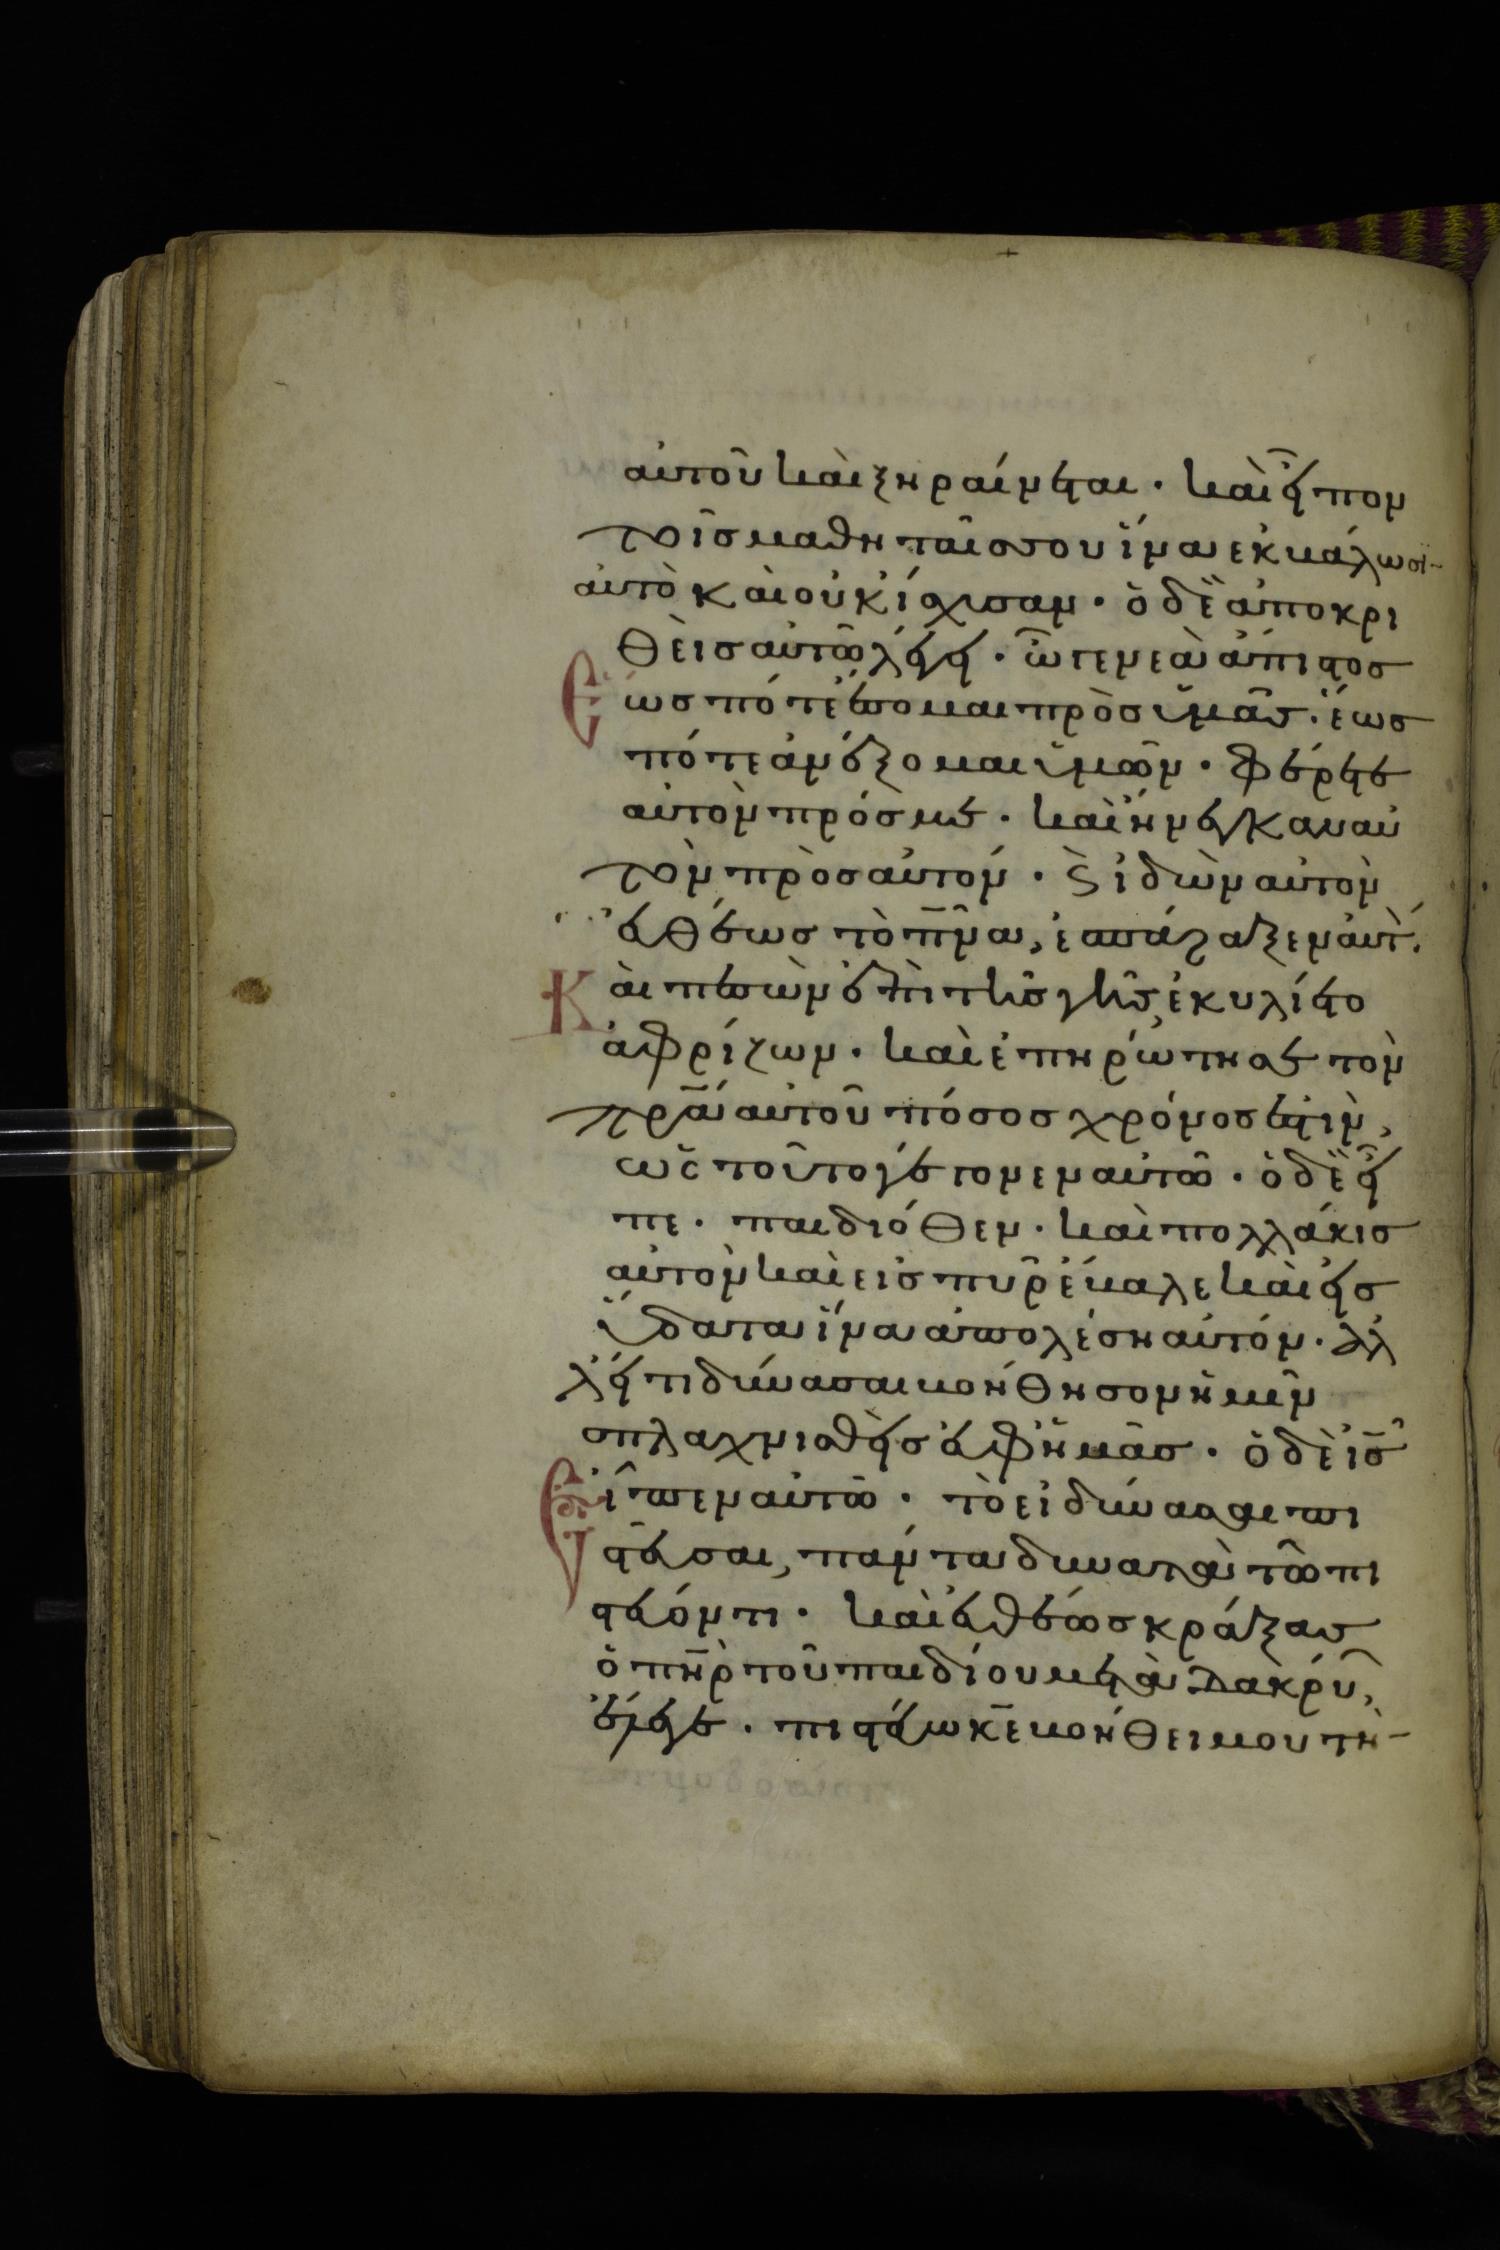 αὐτοῦ καὶ ξηραίνεται · καὶ εἶπον
τοῖς μαθηταῖς σου ἵνα ἐκβάλωσι
αὐτὸ καὶ οὐκ ἴσχυσαν · ὁ δὲ ἀποκρι
θεὶς αὐτῶ λέγει · ὦ γενεὰ ἄπιστος
ἕως πότε ἔσομαι πρὸς ὑμᾶς · ἕως
πότε ἀνέξομαι ὑμῶν · φέρετε
αὐτὸν πρός με · καὶ ἤνεγκαν αὐ
τὸν πρὸς αὐτόν · ϛ ἰδὼν αὐτὸν
εὐθέως τὸ πνα, ἐσπάραξεν αὐτ.
Καὶ πεσὼν ἐπὶ τῆς γῆς, ἐκυλίετο
ἀφρίζων · καὶ ἐπηρώτησε τὸν
πρα αὐτοῦ πόσος χρόνος ἐστὶν,
ὡς τοῦτο γέγονεν αὐτῶ · ὁ δὲ εἶ
πε · παιδιόθεν · καὶ πολλάκις
αὐτὸν καὶ εἰς πῦρ ἔβαλε καὶ εἰς
ὕδατα ἵνα ἀπολέση αὐτόν · ἀλ
λ' εἴ τι δύνασαι βοήθησον ἡμῖν
σπλαχνισθεὶς ἐφ' ἡμᾶς · ὁ δὲ ις
εἶπεν αὐτῶ · τὸ εἰ δύνασαι πι
στεῦσαι, πάντα δυνατὰ τῶ πι
στεύοντι · καὶ εὐθέως κράξας
ὁ πηρ τοῦ παιδίου μετὰ δακρύ,
ἔλεγε · πιστεύω κε βοήθει μου τῆ